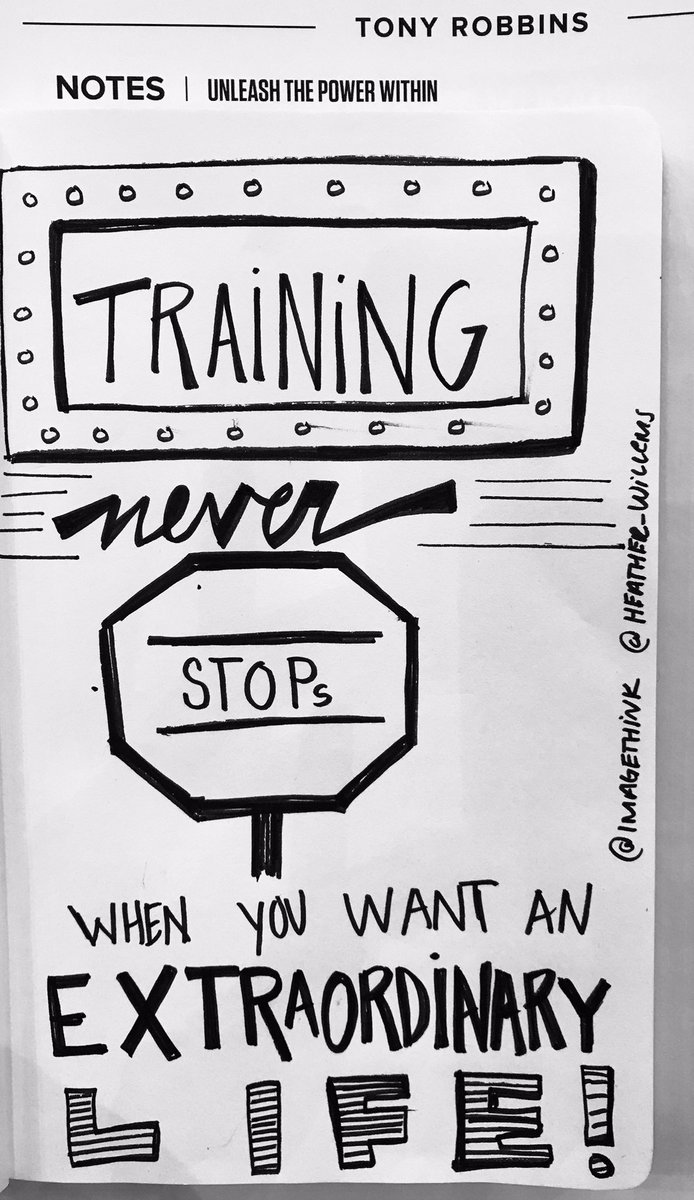 TONY ROBBINS
NOTES | UNLEASH THE POWER WITHIN
TRAiNiNG
never
STOPs
WHEN YOU WANT AN
EXTRAORDiNARY
LIFE!
@IMAGETHiNK @HEATHER_WiLLEMS